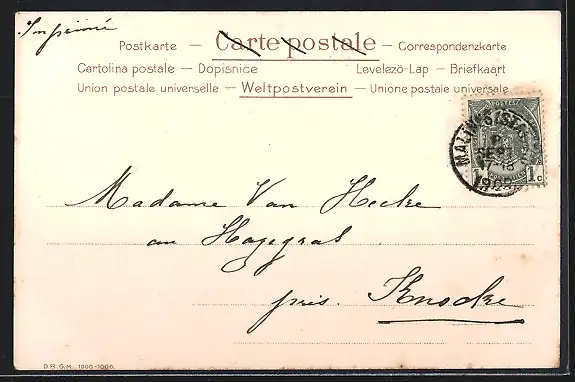 Imprimé
Postkarte — Carte postale — Correspondenzkarte
Cartolina postale — Dopisnice Levelező-Lap — Briefkaart
Union postale universelle — Weltpostverein — Unione postale universale
1 c
1908
Madame Van Hecke
au Hazegras
près Knocke
D.R.G.M. 1906-1906.